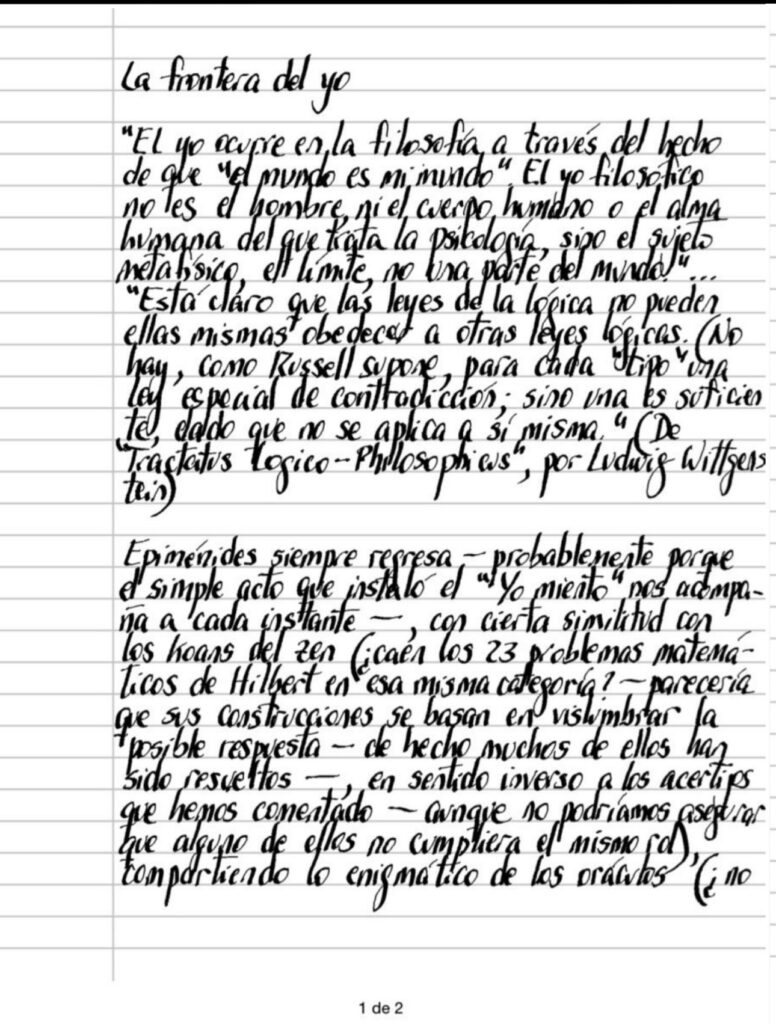 La frontera del yo
"El yo ocurre en la filosofía a través del hecho
de que "el mundo es mi mundo". El yo filosófico
no es el hombre, ni el cuerpo humano o el alma
humana del que trata la psicología, sino el sujeto
metafísico, el límite, no una parte del mundo."...
"Está claro que las leyes de la lógica no pueden
ellas mismas obedecer a otras leyes lógicas. (No
hay, como Russell supone, para cada "tipo" una
ley especial de contradicción; sino una es suficien
te, dado que no se aplica a sí misma." (De
"Tractatus Logico-Philosophicus", por Ludwig Wittgens
tein)
Epiménides siempre regresa — probablemente porque
el simple acto que instaló el "Yo miento" nos acompa-
ña a cada instante —, con cierta similitud con
los koans del zen (¿caen los 23 problemas matemá-
ticos de Hilbert en esa misma categoría? — parecería
que sus construcciones se basan en vislumbrar la
posible respuesta — de hecho muchos de ellos han
sido resueltos —, en sentido inverso a los acertijos
que hemos comentado — aunque no podríamos asegurar
que alguno de ellos no cumpliera el mismo rol),
compartiendo lo enigmático de los oráculos (¿no
1 de 2